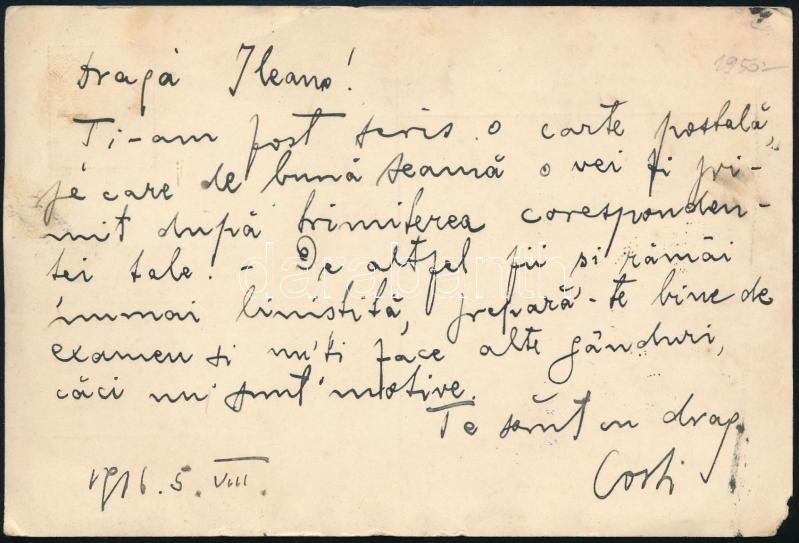 Dragă Ileano!
1950.-
Ti-am fost scris o carte postală,
pe care de bună seamă o vei fi pri-
mit după trimiterea coresponden-
tei tale. - De altfel fii si rămăi
numai linistită, prepară-te bine de
examen si nu'ti face alte gânduri,
căci nu sunt motive.
Te sărut cu drag
Costi
1916. 5. VIII.
darabanth